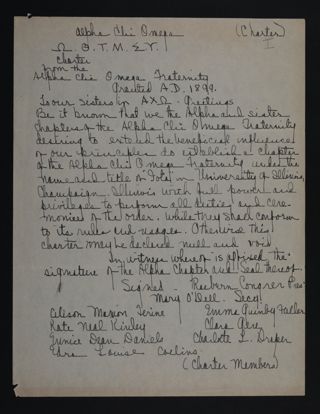 Alpha Chi Omega (Charter)
I
Charter
from the
Alpha Chi Omega Fraternity
Granted A.D. 1899.
To our Sisters in ΑΧΩ - Greetings
Be it known that we the Alpha and sister
chapters of the Alpha Chi Omega Fraternity
desiring to extend the beneficial influences
of our principles do establish a chapter
of the Alpha Chi Omega Fraternity under the
name and title of Iota, in University of Illinois,
Champaign Illinois with full power and
privileges to perform all duties and cere-
monies of the order, while they shall conform
to its rules and usages. Otherwise this
charter may be declared null and void
In witness whereof is affixed the
signature of the Alpha Chapter and Seal thereof.
Signed - Raeburn Pres
Mary O'Dell - Secy
Alison Marion Fernie Emma Quinby Fuller
Kate Neal Kinley Clara Gere
Eunice Dean Daniels Charlotte L. Draper
Edna Louise Collins
(Charter Members)